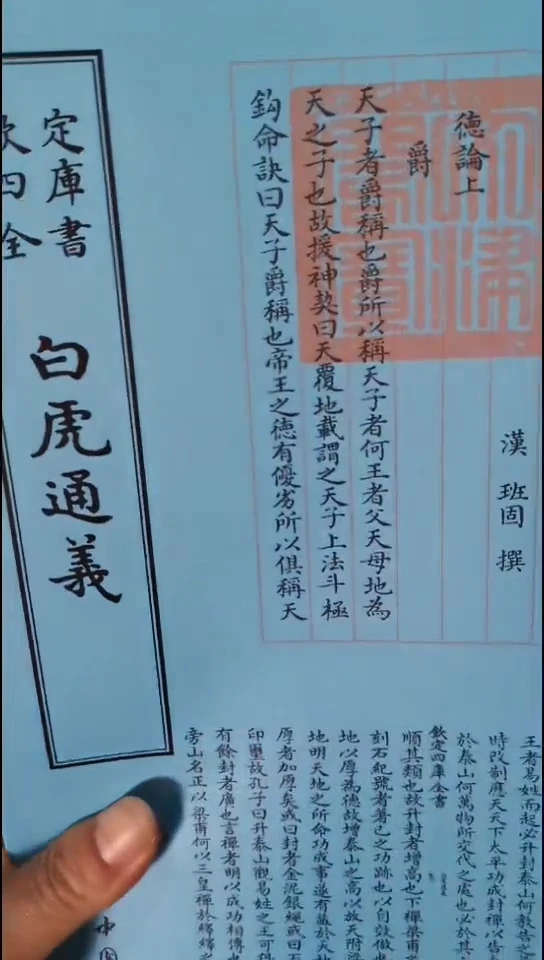 漢 班固 撰
德論上
爵
天子者爵稱也爵所以稱天子者何王者父天母地為
天之子也故援神契曰天覆地載謂之天子上法斗極
鈎命訣曰天子爵稱也帝王之德有優劣所以俱稱天
王者易姓而起必升封泰山何教告之
時改制應天天下太平功成封禪以告太
於泰山何萬物所交代之處也必於其
欽定四庫全書
順其類也故升封者增高也下禪梁甫
刻石紀號者著己之功跡也以自效倣也
地以厚為德故增泰山之高以放天附梁
地明天地之所命功成事遂有益於天地
厚者加厚矣或曰封者金泥銀繩或曰石
印璽故孔子曰升泰山觀易姓之王可得
有餘封者廣也言禪者明以成功相傳也
旁山名正以梁甫何以三皇禪於繹繹
定庫書
欽四全
白虎通義
中